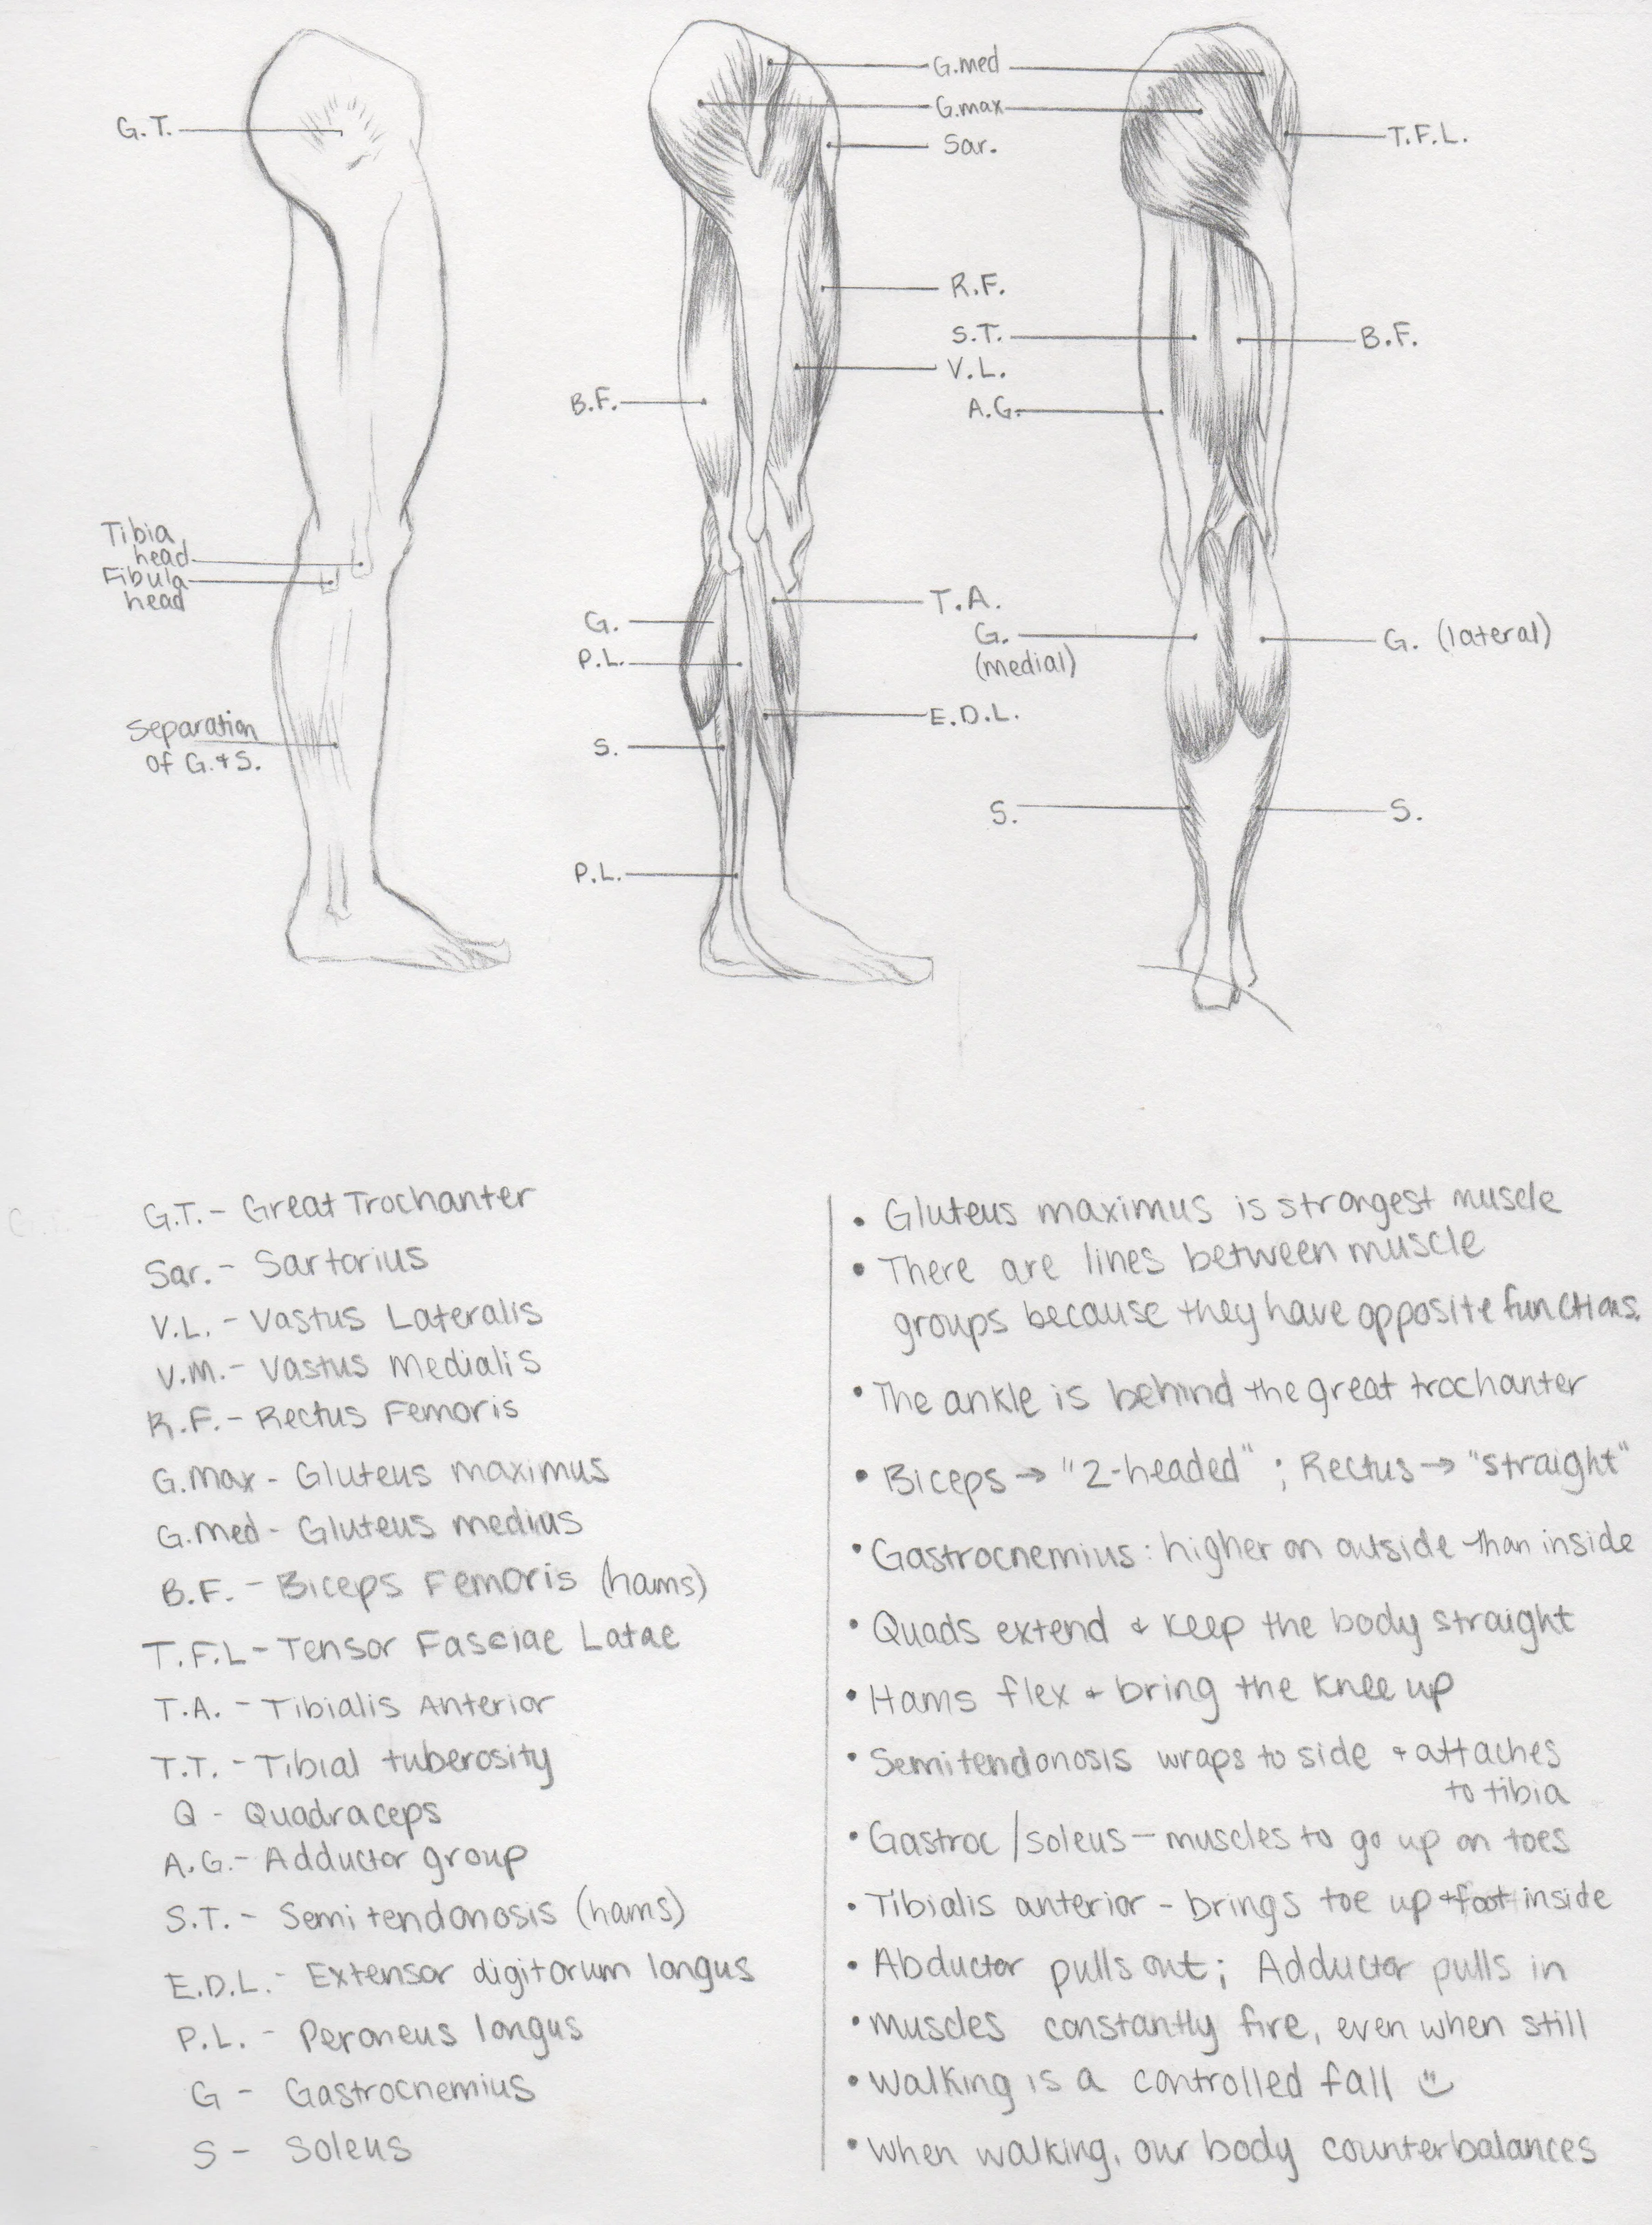 G.T.
Tibia
head
Fibula
head
Separation
of G.+S.
G.med
G.max
Sar.
R.F.
S.T.
V.L.
A.G.
B.F.
T.A.
G.
(medial)
G.
P.L.
E.D.L.
S.
P.L.
S.
T.F.L.
B.F.
G. (lateral)
S.
G.T. - Great Trochanter
Sar. - Sartorius
V.L. - Vastus Lateralis
V.M. - Vastus Medialis
R.F. - Rectus Femoris
G.Max - Gluteus maximus
G.Med - Gluteus medius
B.F. - Biceps Femoris (hams)
T.F.L - Tensor Fasciae Latae
T.A. - Tibialis Anterior
T.T. - Tibial tuberosity
Q - Quadraceps
A.G. - Adductor group
S.T. - Semitendonosis (hams)
E.D.L. - Extensor digitorum longus
P.L. - Peroneus longus
G - Gastrocnemius
S - Soleus
• Gluteus maximus is strongest muscle
• There are lines between muscle
groups because they have opposite functions.
• The ankle is behind the great trochanter
• Biceps → "2-headed" ; Rectus → "straight"
• Gastrocnemius: higher on outside than inside
• Quads extend + keep the body straight
• Hams flex + bring the knee up
• Semitendonosis wraps to side + attaches
to tibia
• Gastroc/soleus - muscles to go up on toes
• Tibialis anterior - brings toe up + foot inside
• Abductor pulls out; Adductor pulls in
• Muscles constantly fire, even when still
• Walking is a controlled fall
• When walking, our body counterbalances